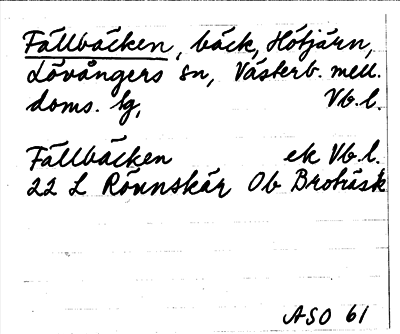 Fällbäcken, bäck, Hötjärn,
Lövångers sn, Västerb. mell.
doms. lg, Vb.l.
Fällbäcken ek Vb.l.
22 L Rönnskär Ob Broträsk
ASO 61